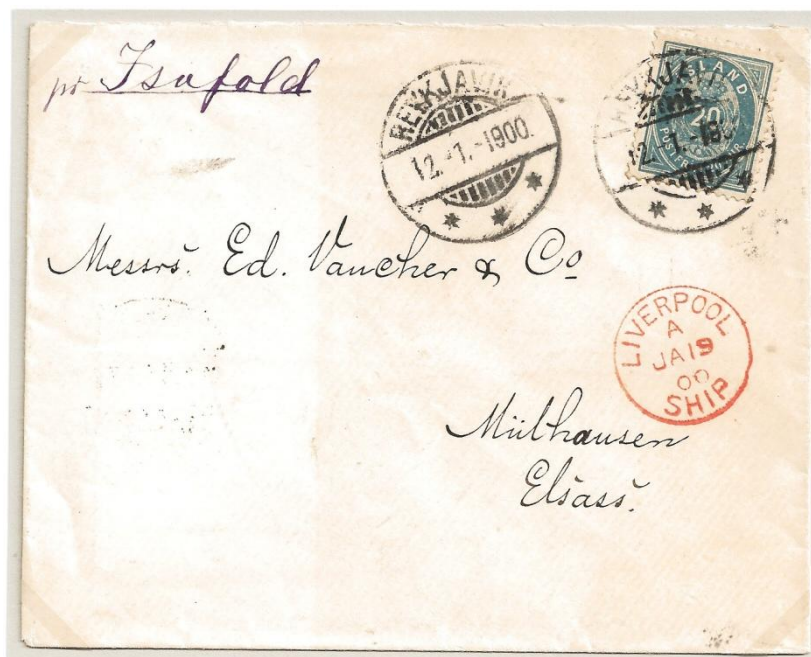 pr Isafold
REYKJAVIK
12.-1.-1900.
REYKJAVIK
12.-1.-190
ISLAND
20
POSTFRIM
Messrs. Ed. Vaucher & Co
LIVERPOOL
A
JA 19
00
SHIP
Mülhausen
Elsass.